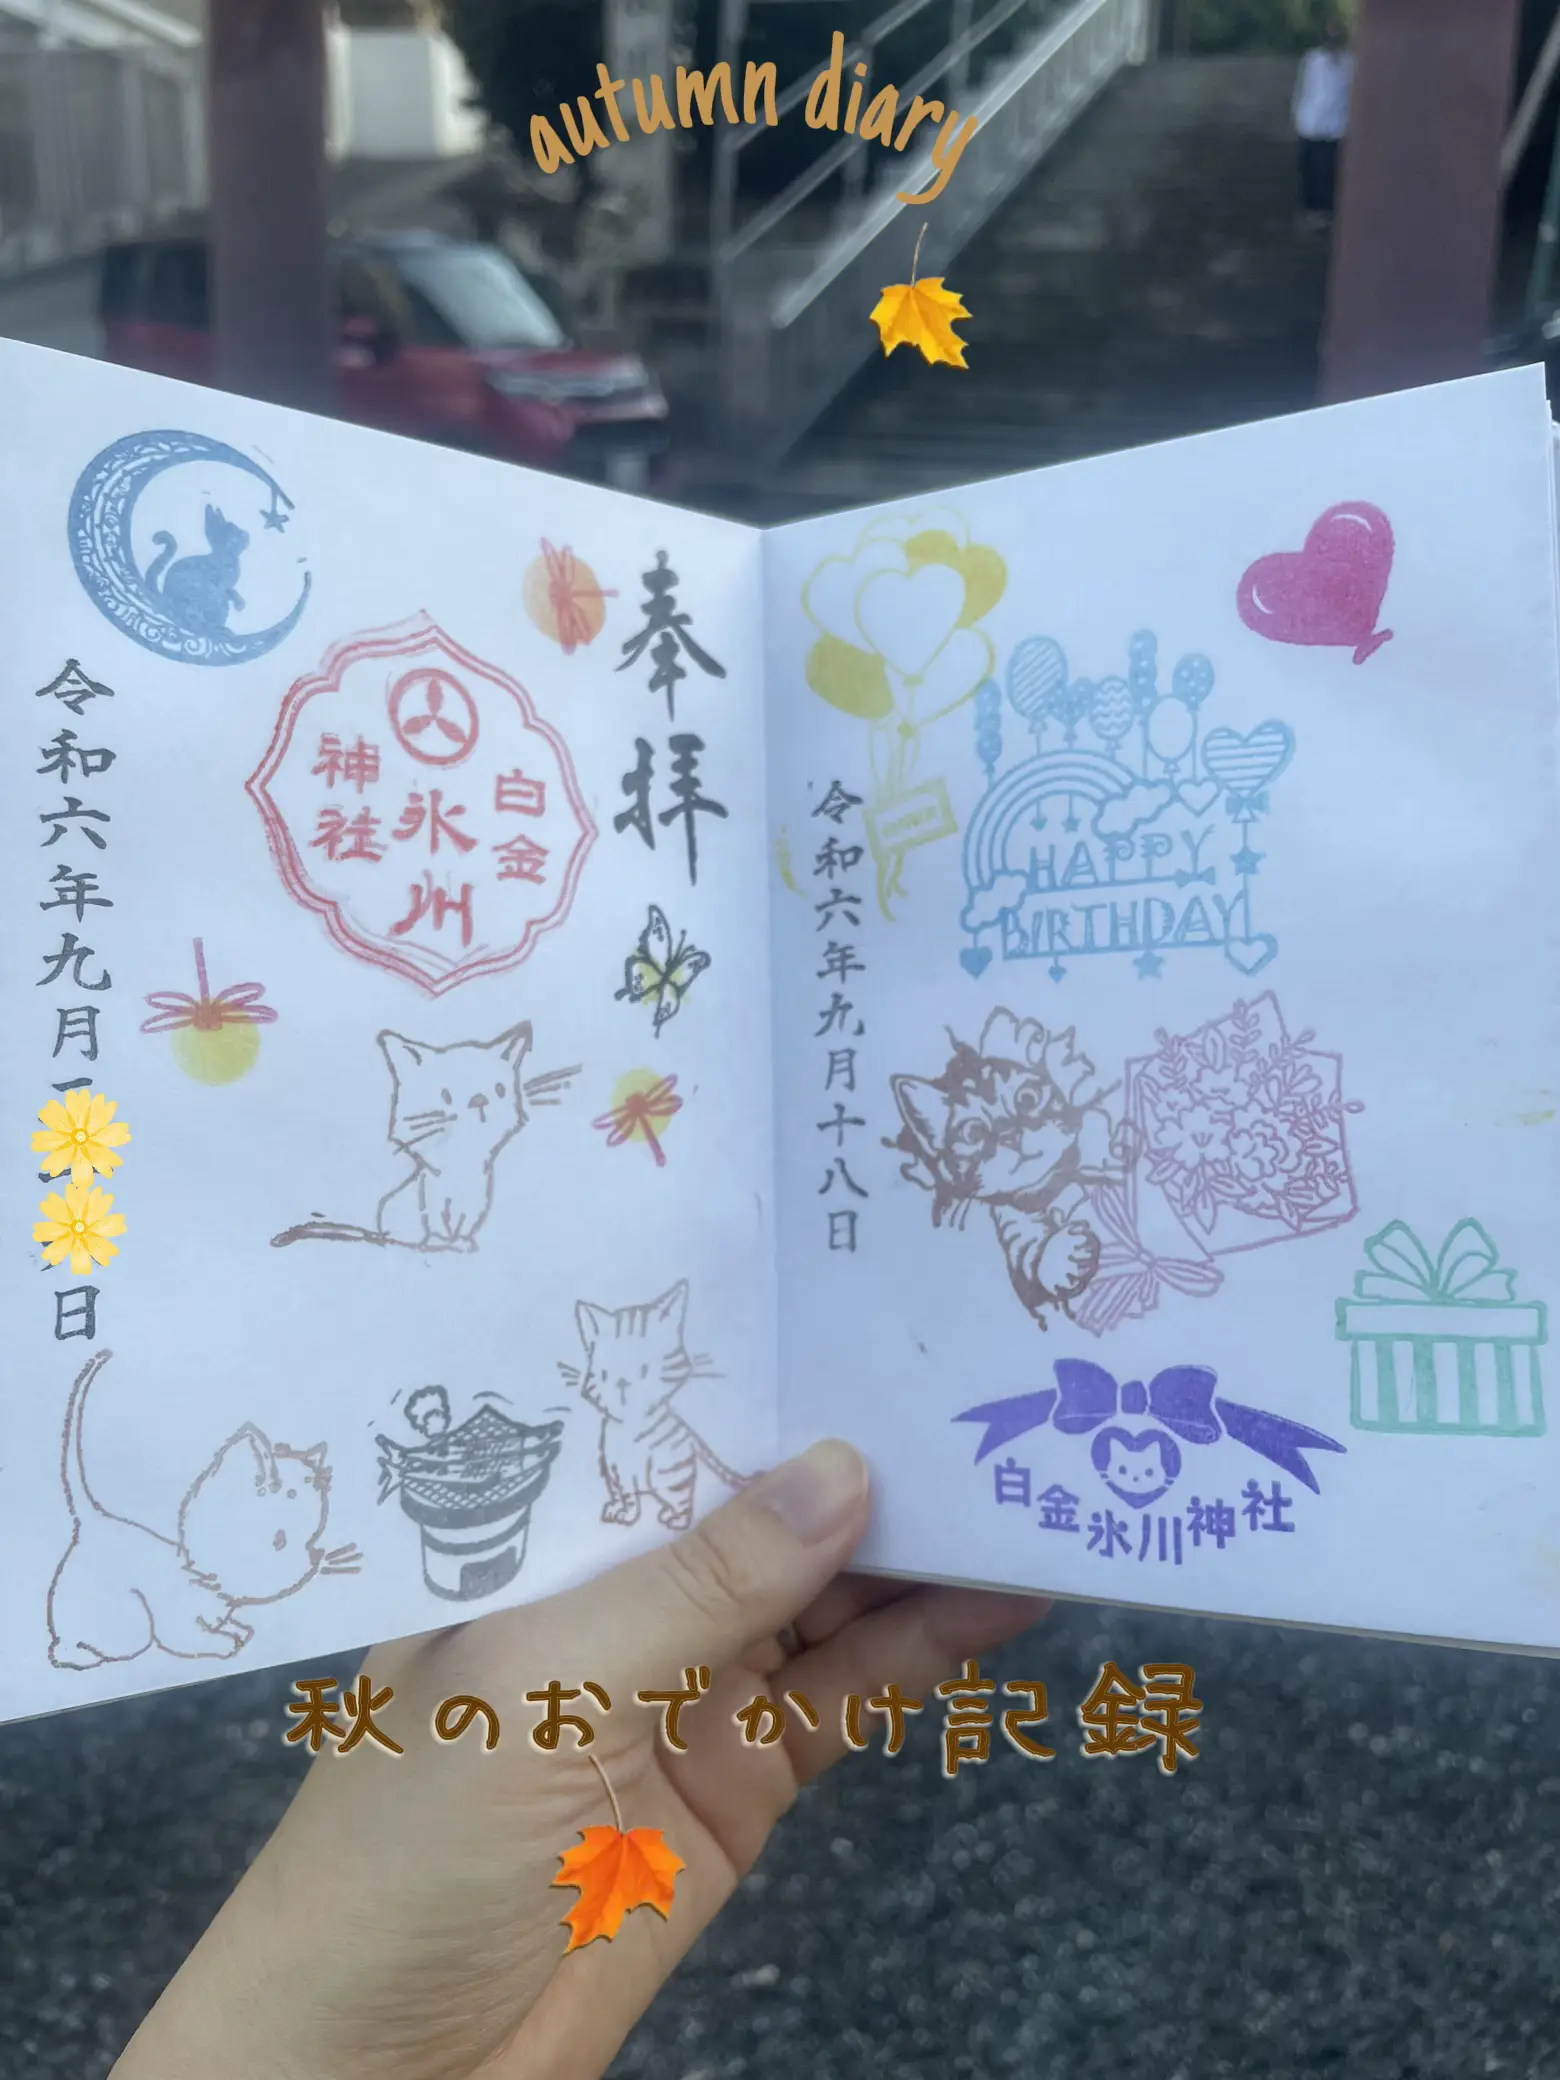 autumn diary
奉拝
白金
氷川
神社
令和六年九月
日
HAPPY
BIRTHDAY
令和六年九月十八日
白金氷川神社
秋のおでかけ記録